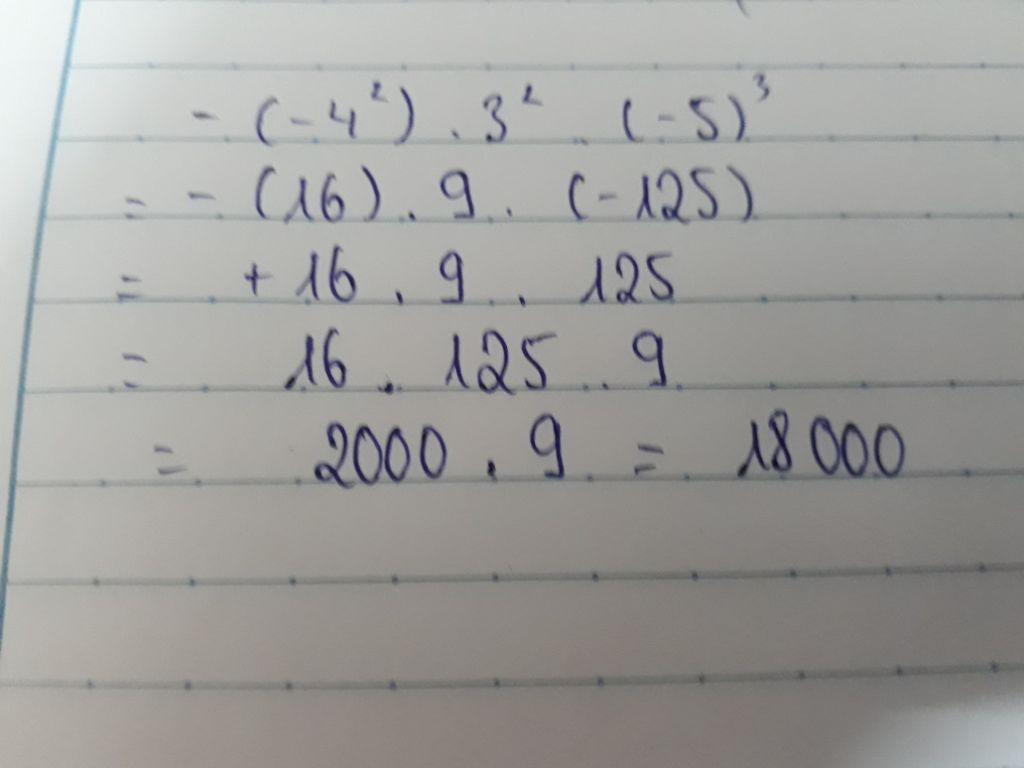 - (-4²) . 3² . (-5)³
= - (16) . 9 . (-125)
= + 16 . 9 . 125
= 16 . 125 . 9
= 2000 . 9 = 18000